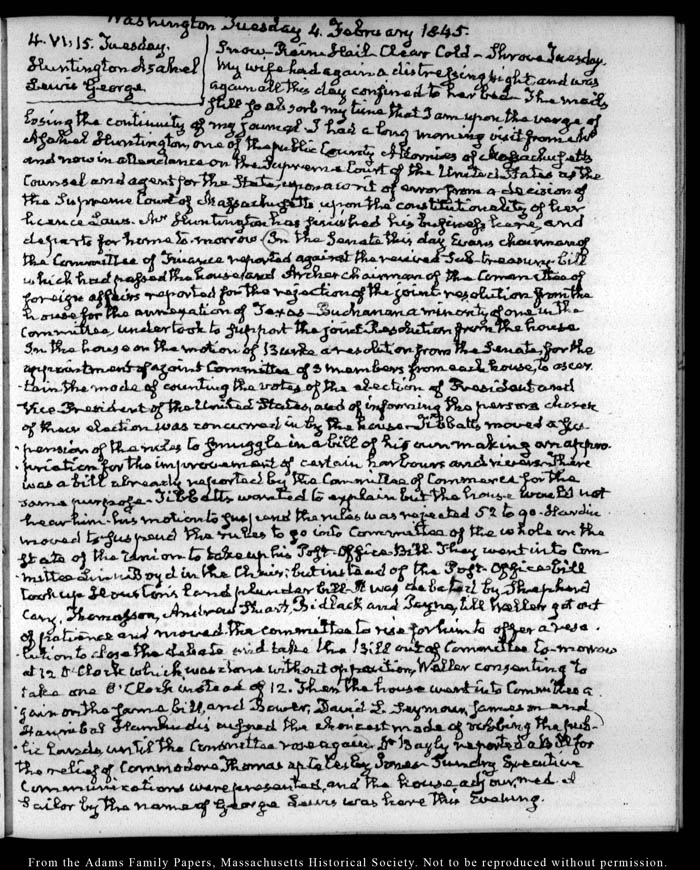 Washington Tuesday 4. February 1845.
4. VI:15. Tuesday.
Huntington Asahel
Lewis George
Snow Rain Hail Clear Cold – Shrove Tuesday.
My wife had again a distressing night and was
again all this day confined to her bed. The mails
still so absorb my time that I am upon the verge of
losing the continuity of my journal I had a long morning visit from Mr
Asahel Huntington, one of the public County Attornies of Massachusetts
and now in attendance on the Supreme Court of the United States as the
Counsel and agent for the State, upon a writ of error from a decision of
the Supreme Court of Massachusetts upon the constitutionality of her
licence Laws. Mr Huntington has finished his business here, and
departs for home to-morrow (In the Senate this day Evans chairman of
the Committee of Finance reported against the revived Sub-treasury bill
which had passed the house, and Archer chairman of the Committee of
foreign affairs reported for the rejection of the joint resolution from the
house for the annexation of Texas – Buchanan a minority of one in the
Committee, undertook to support the joint Resolution from the house
In the house on the motion of Burke a resolution from the Senate, for the
appointment of a joint Committee of 3 members from each house, to ascer-
tain the mode of counting the votes of the election of President and
Vice-President of the United States, and of informing the persons chosen
of their election was concurred in by the house – Tibbatts moved a sus-
pension of the rules to smuggle in a bill of his own making an appro-
priation for the improvement of certain harbours and rivers – There
was a bill already reported by the Committee of Commerce for the
same purpose – Tibbatts wanted to explain but the house would not
hear him – his motion to suspend the rules was rejected 52 to 90 – Hardin
moved to suspend the rules to go into Committee of the whole on the
state of the Union to take up his Post-Office Bill. They went into Com-
mittee Linn Boyd in the Chair; but instead of the Post-Office bill
took up Houston's land plunder bill – It was debated by Shepherd
Cary, Thomasson, Andrew Stuart, Bidlack and Payne, till Weller got out
of patience and moved the committee to rise for him to offer a reso-
lution to close the debate and take the bill out of Committee to-morrow
at 12 O'Clock which was done without opposition, Weller consenting to
take one O'Clock instead of 12. Then the house went into Committee a-
gain on the same bill, and Bower, David L. Seymour, Jameson and
Hannibal Hamlin discussed the choicest mode of robbing the pub-
lic Lands, until the Committee rose again. Dr Bayly reported a Bill for
the relief of Commodore Thomas ap Catesby Jones – Sundry Executive
Communications were presented, and the house adjourned. A
Sailor by the name of George Lewis was here this Evening.
From the Adams Family Papers, Massachusetts Historical Society. Not to be reproduced without permission.